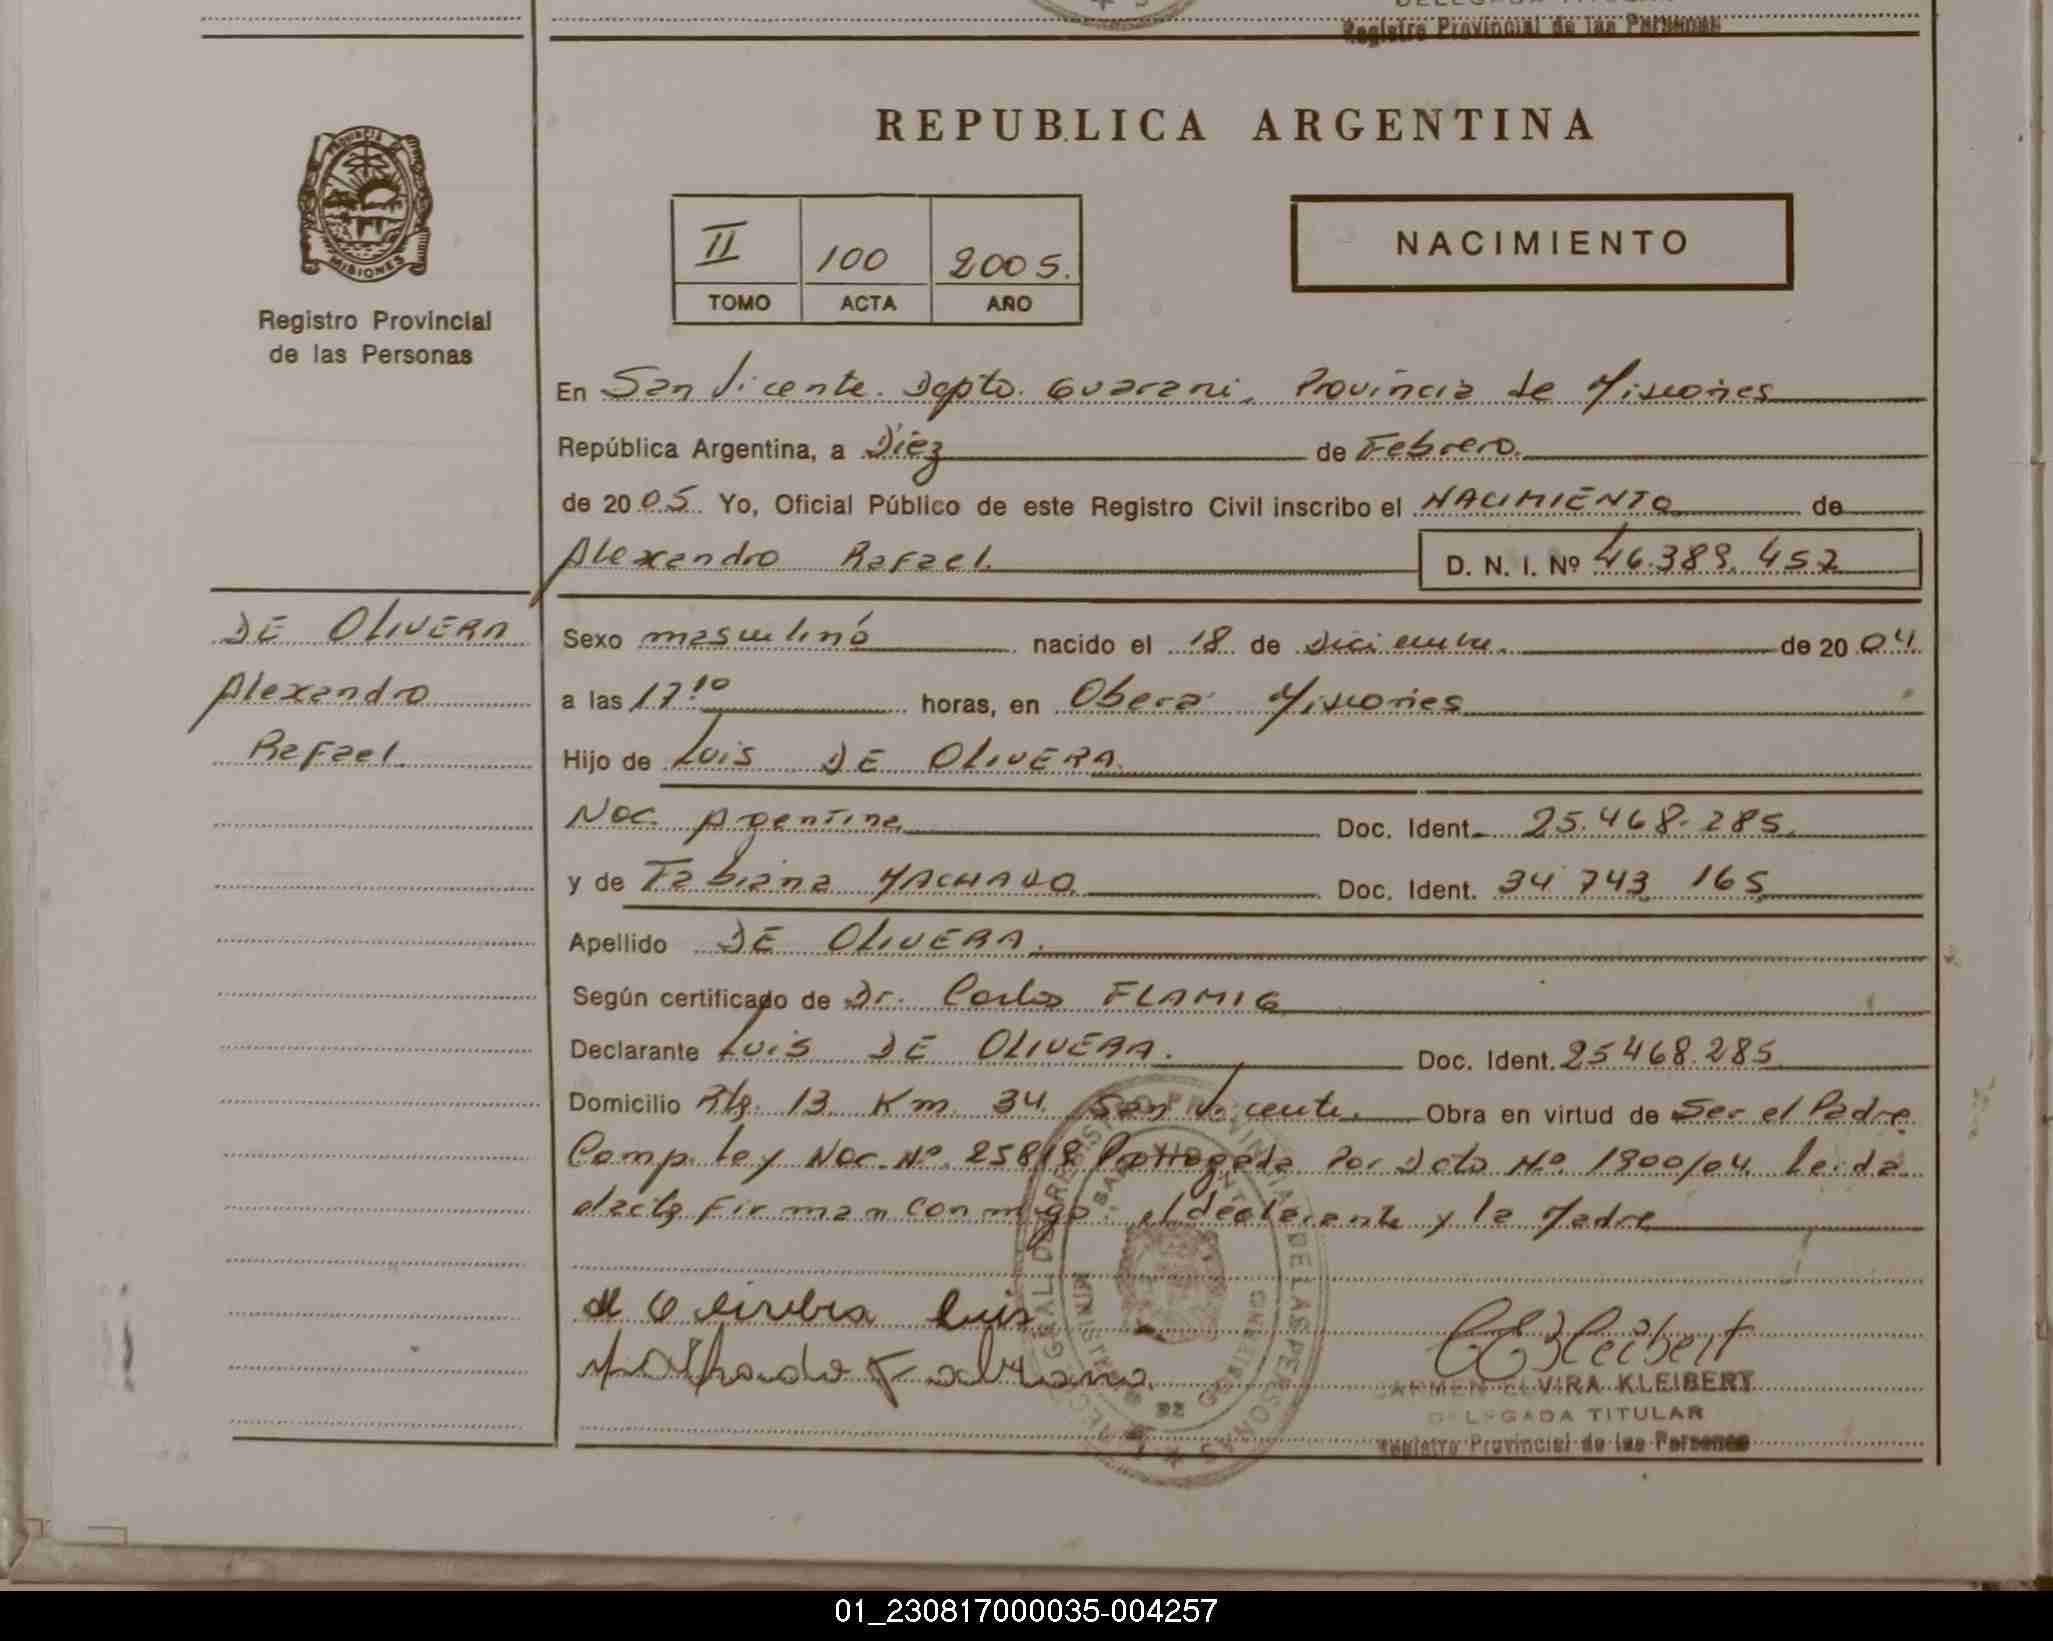 Registro Provincial de las Personas
REPUBLICA ARGENTINA
PROVINCIA DE
MISIONES
Registro Provincial
de las Personas
II 100 2005.
TOMO ACTA AÑO
NACIMIENTO
En San Vicente. Depto. Guarani, Provincia de Misiones
República Argentina, a Diez de Febrero.
de 2005. Yo, Oficial Público de este Registro Civil inscribo el NACIMIENTO de
Alexandro Rafael. D. N. I. Nº 46.389.452
DE OLIVERA
Alexandro
Rafael.
Sexo masculino nacido el 18 de Diciembre. de 2004.
a las 17:10 horas, en Obera Misiones
Hijo de Luis DE OLIVERA.
Nac. Argentina Doc. Ident. 25.468.285.
y de Fabiana MACHADO Doc. Ident. 34 743 165
Apellido DE OLIVERA.
Según certificado de Dr. Carlos FLAMIG
Declarante Luis DE OLIVERA. Doc. Ident. 25468.285
Domicilio Rta. 13 Km. 34. San Vicente. Obra en virtud de Ser el Padre.
Comp. Ley Nac. Nº 25818 Prorrogada Por Dcto Nº. 1900/04. Leida
el acta firman conmigo el declarante y la Madre
de Oliveira Luis
Machado Fabiana
CEKleibert
CARMEN ELVIRA KLEIBERT
DELEGADA TITULAR
Registro Provincial de las Personas
01_230817000035-004257